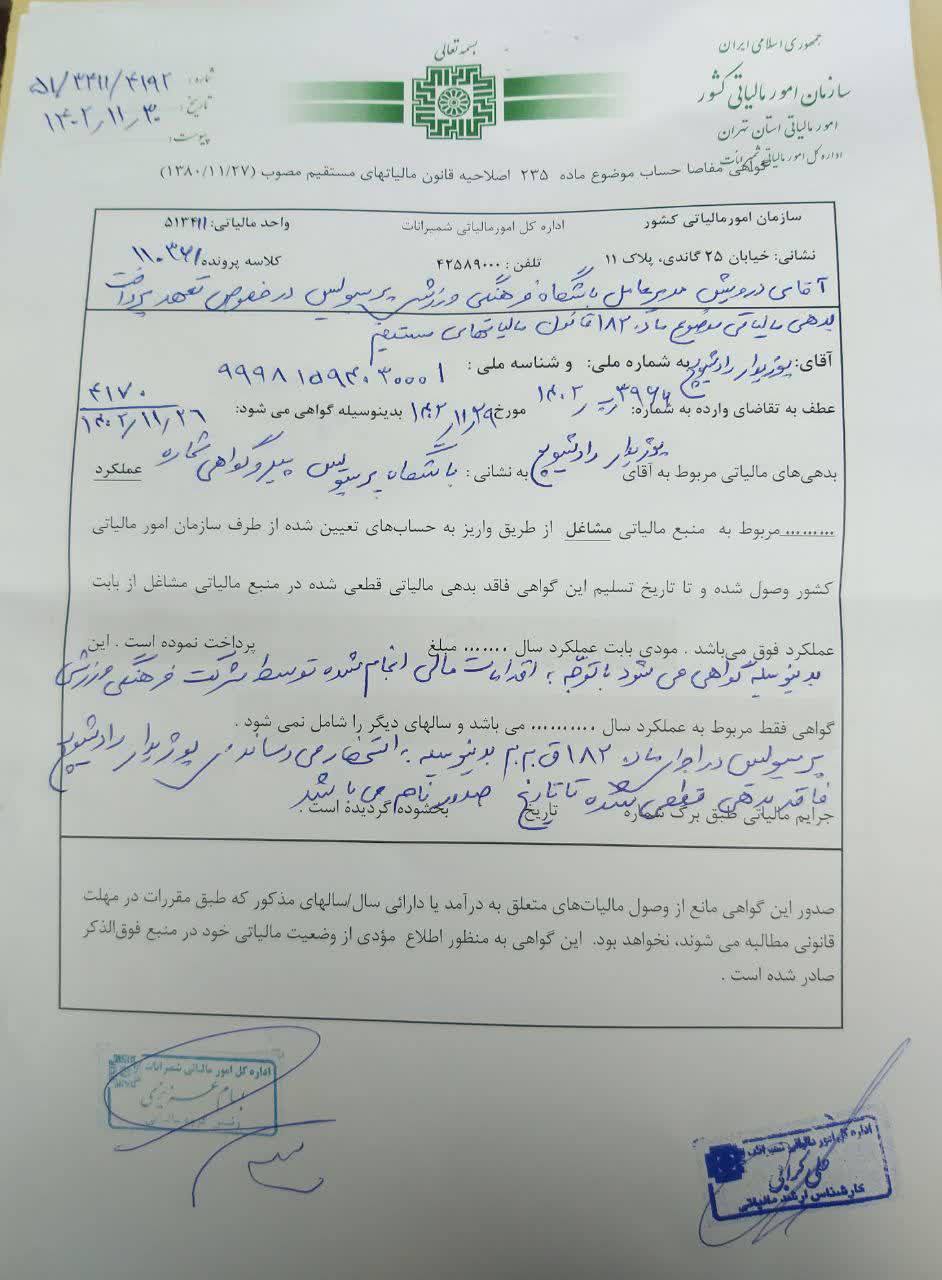 بسمه تعالی
جمهوری اسلامی ایران
سازمان امور مالیاتی کشور
امور مالیاتی استان تهران
اداره کل امور مالیاتی شمیرانات
شماره: ۵۱/۳۴۱۱/۴۱۹۲
تاریخ: ۱۴۰۲/۱۱/۳۰
پیوست:
گواهی مفاصا حساب موضوع ماده ۲۳۵ اصلاحیه قانون مالیاتهای مستقیم مصوب (۱۳۸۰/۱۱/۲۷)
سازمان امورمالیاتی کشور اداره کل امورمالیاتی شمیرانات واحد مالیاتی: ۵۱۳۴۱۱
نشانی: خیابان ۲۵ گاندی، پلاک ۱۱ تلفن : ۴۲۵۸۹۰۰۰ کلاسه پرونده
آقای درویش مدیرعامل باشگاه فرهنگی ورزشی پرسپولیس در خصوص تعهد پرداخت
بدهی مالیاتی موضوع ماده ۱۸۲ قانون مالیاتهای مستقیم
آقای: بوژیدار رادشیویچ به شماره ملی: و شناسه ملی :
عطف به تقاضای وارده به شماره: مورخ ۱۴۰۲/۱۱/۲۹ بدینوسیله گواهی می شود: ۴۱۷۰
۱۴۰۲/۱۱/۲۶
بدهی‌های مالیاتی مربوط به آقای بوژیدار رادشیویچ به نشانی : باشگاه پرسپولیس پیرو گواهی شماره عملکرد
......... مربوط به منبع مالیاتی مشاغل از طریق واریز به حساب‌های تعیین شده از طرف سازمان امور مالیاتی
کشور وصول شده و تا تاریخ تسلیم این گواهی فاقد بدهی مالیاتی قطعی شده در منبع مالیاتی مشاغل از بابت
عملکرد فوق می‌باشد . مودی بابت عملکرد سال ....... مبلغ پرداخت نموده است . این
بدینوسیله گواهی می شود باتوجه به اقدامات مالی انجام شده توسط شرکت فرهنگی ورزشی
گواهی فقط مربوط به عملکرد سال .......... می باشد و سالهای دیگر را شامل نمی شود .
پرسپولیس در اجرای ماده ۱۸۲ ق.م.م بدینوسیله به استحضار می رساند بوژیدار رادشیویچ
فاقد بدهی قطعی شده تا تاریخ صدور نامه می باشد
جرایم مالیاتی طبق برگ شماره تاریخ بخشوده گردیده است .
صدور این گواهی مانع از وصول مالیات‌های متعلق به درآمد یا دارائی سال/سالهای مذکور که طبق مقررات در مهلت
قانونی مطالبه می شوند، نخواهد بود. این گواهی به منظور اطلاع مؤدی از وضعیت مالیاتی خود در منبع فوق‌الذکر
صادر شده است .
اداره کل امور مالیاتی شمیرانات
اداره کل امور مالیاتی شمیرانات
کارشناس ارشد مالیاتی